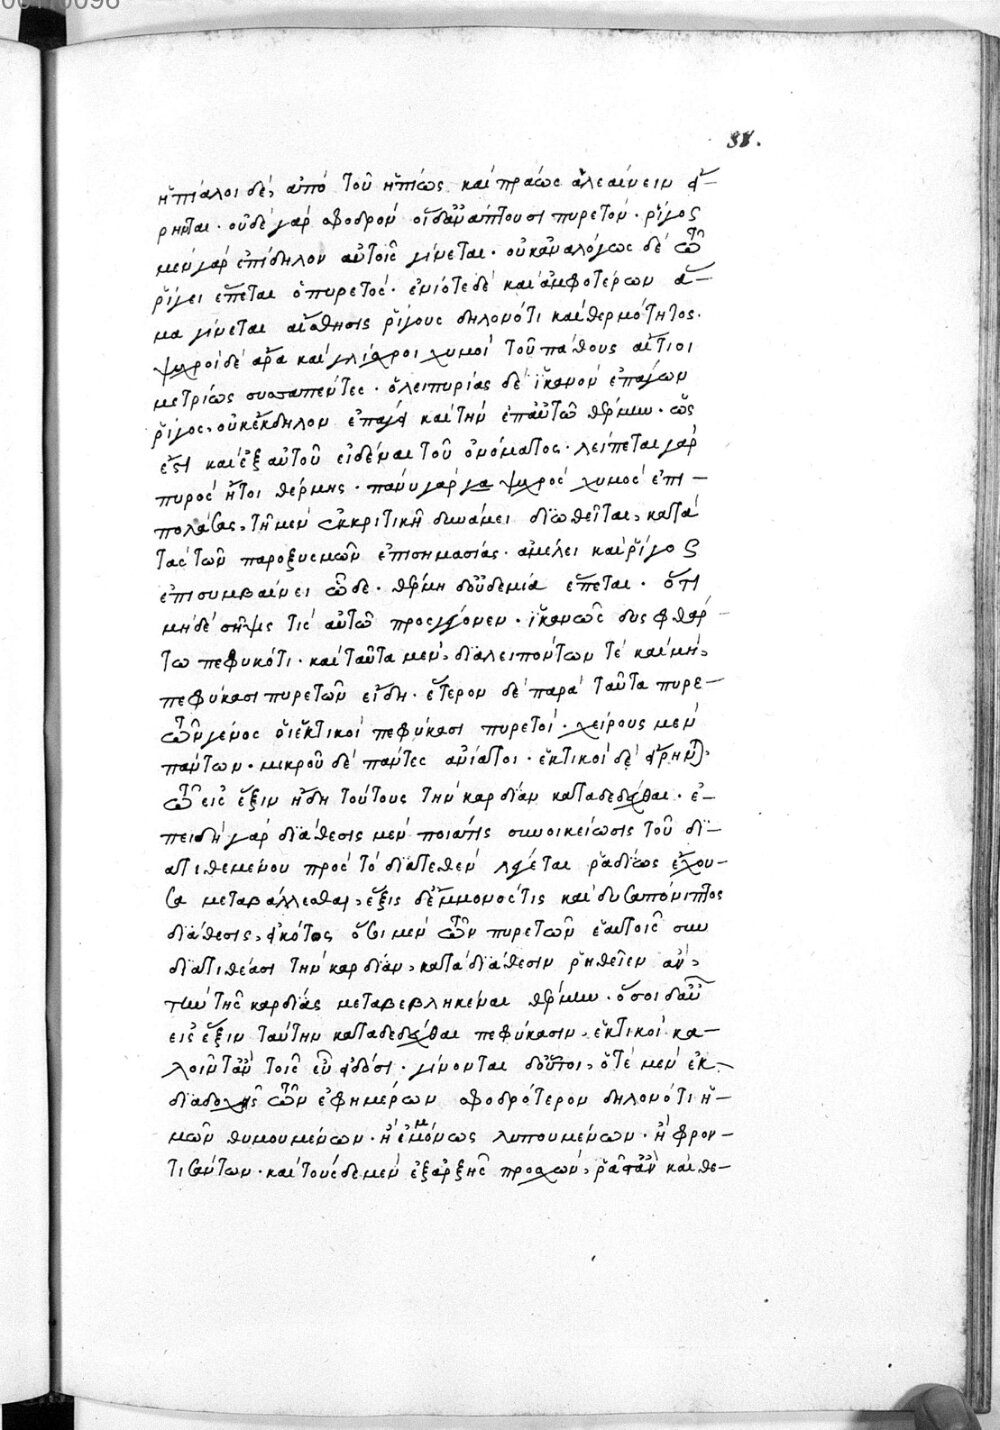 38.
ἠπίαλοι δὲ, ἀπὸ τοῦ ἠπίως καὶ πράως ἀλεαίνειν εἴ-
ρηνται. οὐδὲ γὰρ σφοδρὸν οἵδ' ἀνάπτουσι πυρετόν. ῥῖγος
μὲν γὰρ ἐπίδηλον αὐτοῖς γίνεται. οὐκ ἀναλόγως δὲ τῷ
ῥίγει ἕπεται ὁ πυρετός. ἐνίοτε δὲ καὶ ἀμφοτέρων ἅ-
μα γίνεται αἴσθησις ῥίγους δηλονότι καὶ θερμότητος.
ψυχροὶ δὲ ἄρα καὶ γλίσχροι χυμοὶ τοῦ πάθους αἴτιοι
μετρίως συσσαπέντες. ὁ λειπυρίας δὲ ἱκανὸν ἐπάγων
ῥῖγος, οὐκ ἔκδηλον ἐπάγει καὶ τὴν ἐπ' αὐτῷ θέρμην. ὥς
ἐστι καὶ ἐξ αὐτοῦ εἰδέναι τοῦ ὀνόματος. λείπεται γὰρ
πυρὸς ἤτοι θέρμης. πάνυ γὰρ ψυχρὸς χυμὸς ἐπι-
πολάσας, τῇ μὲν ἐκκριτικῇ δυνάμει διωθεῖται, κατὰ
τὰς τῶν παροξυσμῶν ἐπισημασίας. ἀμέλει καὶ ῥῖγος
ἐπισυμβαίνει τῷδε. θέρμη δ' οὐδεμία ἕπεται. ὅτι
μηδὲ σῆψίς τις αὐτῷ προσγέγονεν. ἱκανῶς δυσφθάρ-
τῳ πεφυκότι. καὶ ταῦτα μὲν, διαλειπόντων τὲ καὶ μὴ,
πεφύκασι πυρετῶν εἴδη. ἕτερον δὲ παρὰ ταῦτα πυρε-
τῶν γένος οἱ ἑκτικοὶ πεφύκασι πυρετοί. χείρους μὲν
πάντων. μικροῦ δὲ πάντες ἀνίατοι. ἑκτικοὶ δὲ εἴρηνται.
τῷ εἰς ἕξιν ἤδη τούτους τὴν καρδίαν καταδεδέχθαι. ἐ-
πειδὴ γὰρ διάθεσις μὲν ποιά τις συνοικείωσις τοῦ δι-
ατιθεμένου πρὸς τὸ διατεθὲν λέγεται ῥᾳδίως ἔχου-
σα μεταβάλλεσθαι, ἕξις δ' ἔμμονός τις καὶ δυσαπόνιπτος
διάθεσις, εἰκότως ὅσοι μὲν τῶν πυρετῶν ἑαυτοῖς συν
διατιθέασι τὴν καρδίαν, κατὰ διάθεσιν ῥηθεῖεν ἂν,
τὴν τῆς καρδίας μεταβεβληκέναι θέρμην. ὅσοι δ' αὖ
εἰς ἕξιν ταύτην καταδεδέχθαι πεφύκασιν, ἑκτικοὶ κα-
λοῖντ' ἂν τοῖς εὖ εἰδόσι. γίνονται δ' οὗτοι, ὁτὲ μὲν ἐκ
διαδοχῆς τῶν ἐφημέρων σφοδρότερον δηλονότι ἡ-
μῶν θυμουμένων. ἢ ἐμμόνως λυπουμένων. ἢ φρον-
τισάντων. καὶ τούσδε μὲν ἐξ ἀρχῆς προσχὼν, ῥᾷστ' ἂν καὶ θε-